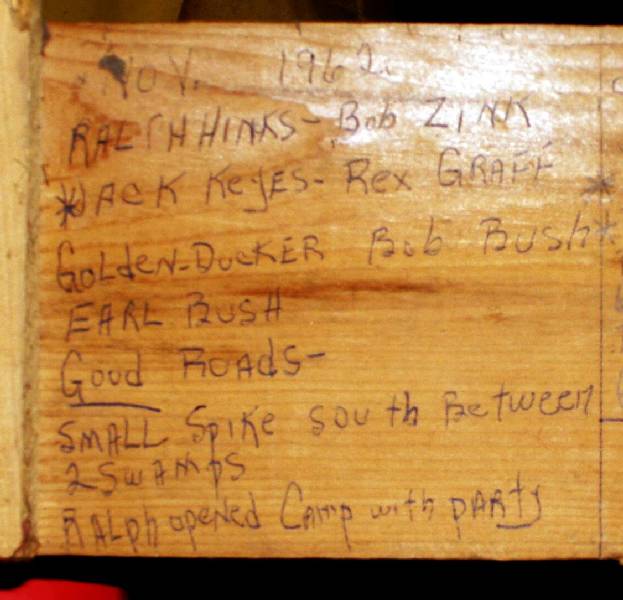 Nov. 1962
RALPH HINKS - Bob ZINK
*JACK KeyES - Rex GRAFF *
GOLdeN - DUCKER Bob Bush *
EARL BUSH
Good ROAdS -
SMALL SpIKe south BeTween
2 SWAMpS
RALph opened CAmp with pARty